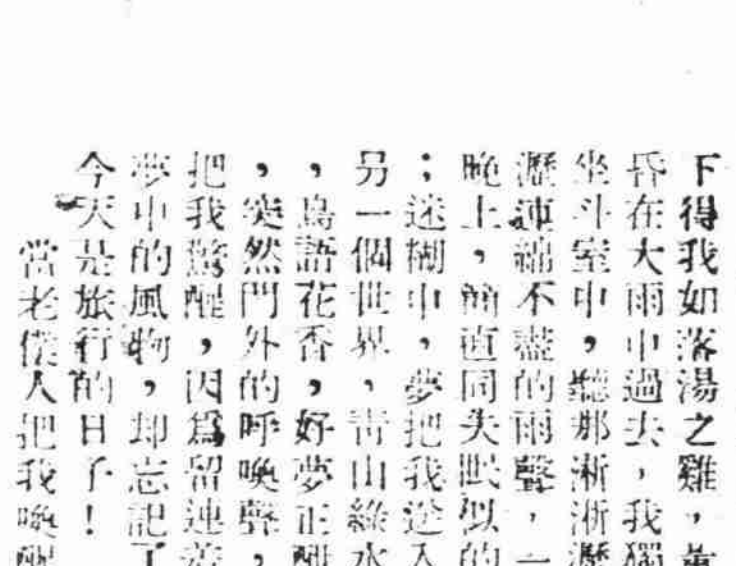 下得我如落湯之雞，黃
昏在大雨中過去，我獨
坐斗室中，聽那淅淅瀝
瀝連綿不盡的雨聲，一
晚上，簡直同失眠似的
；迷糊中，夢把我送入
另一個世界，青山綠水
，鳥語花香，好夢正酣
，突然門外的呼喚聲，
把我驚醒，因爲留連着
夢中的風物，却忘記了
今天是旅行的日子！
當老僕人把我喚醒